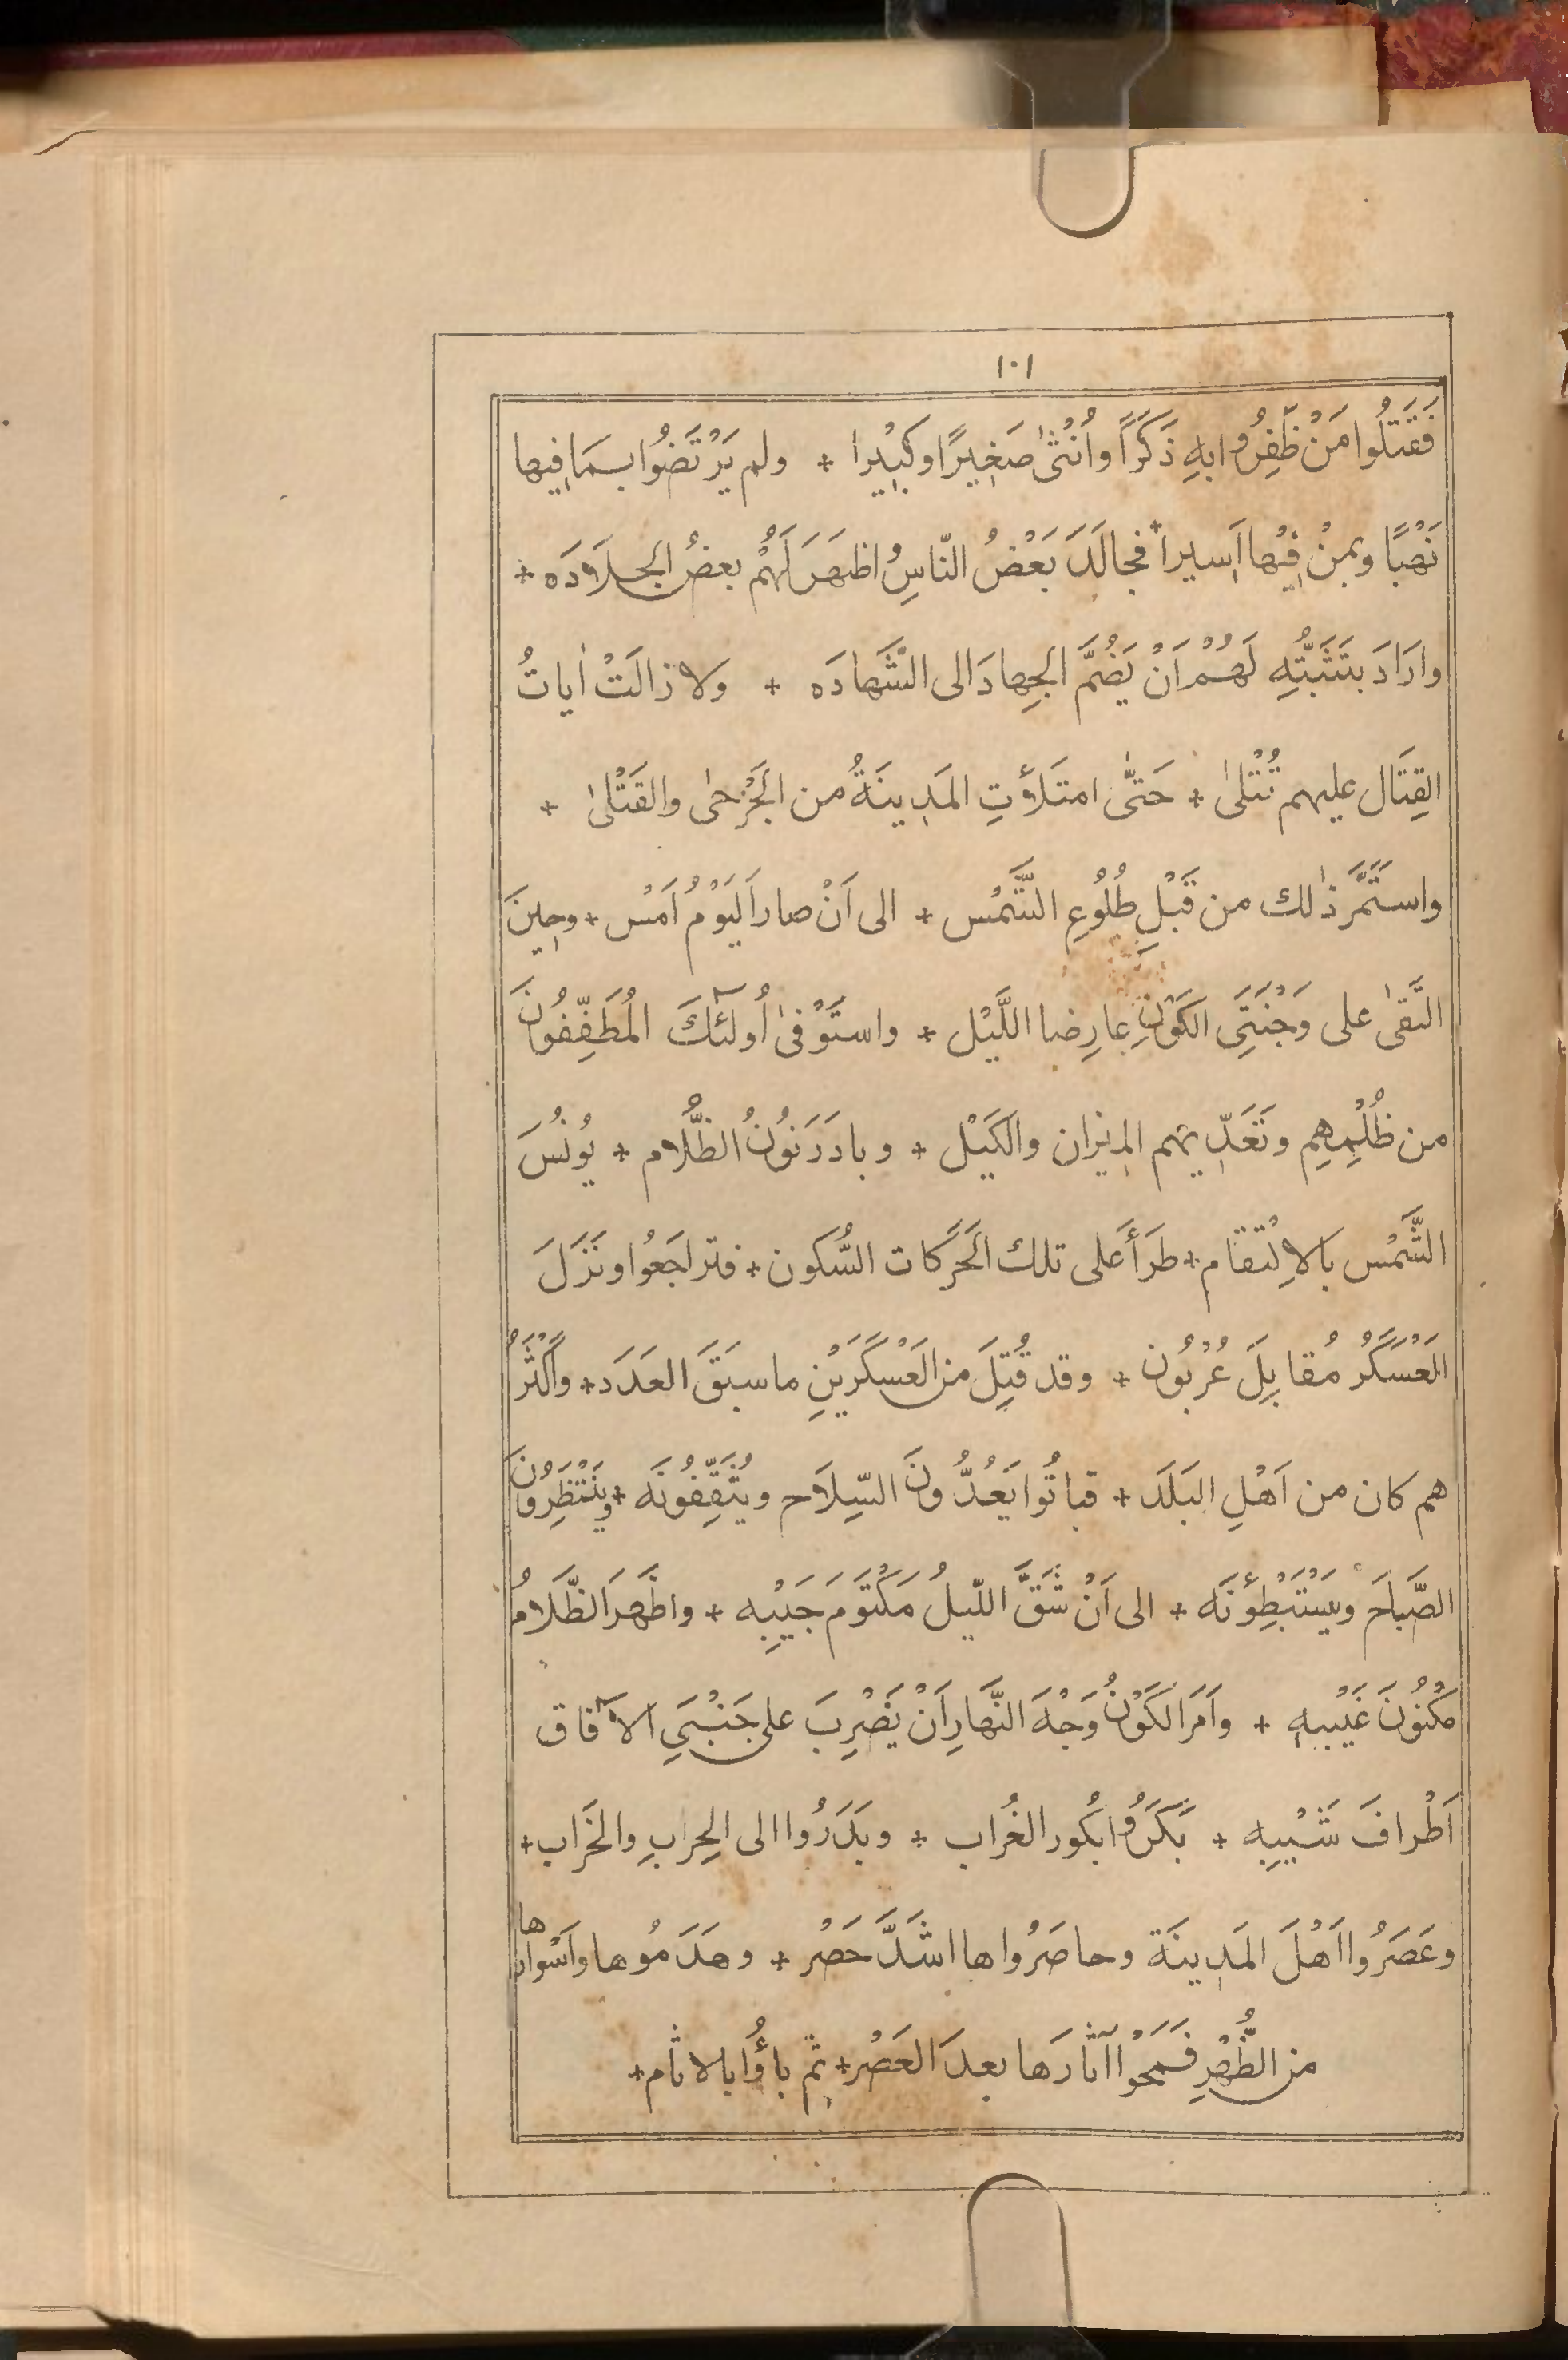 ١٠١
فَقَتَلُوا مَنْ ظَفِرُوا بِهِ ذَكَرًا وأُنْثىٰ صَغِيرًا وكَبِيْرا + ولم يَرْتَضُوا بمَا فِيها
نَهْبًا وبمنْ فِيْها اَسيراً + فجالَدَ بَعْضُ النّاسِ واظهَرَ لَهُمْ بعضُ الجلَادَه +
وارَادَ بتَثَبُّتِهِ لَهُمْ اَنْ يَضُمَّ الجِهادَ الى الشَّهادَه + ولا زالَتْ اٰياتُ
القِتَال عليهم تُتْلىٰ + حَتّٰى امتَلَأَتِ المَدِينَةُ من الجَرْحىٰ والقَتْلىٰ +
واستَمَرَّ ذٰلك من قَبْلِ طُلُوعِ الشَّمْس + الى اَنْ صارَ اَليَوْمُ اَمْس + وحِينَ
التَقىٰ على وَجْنَتَيِ الكَوْنِ عارِضا اللَّيْل + واستَوْفىٰ اُولٓئكَ المُطَفِّفُونَ
من ظُلْمِهِم وتَعَدِّيهم المِيزان والكَيْل + وبادَرَ نُونُ الظَّلام + يُونُسَ
الشَّمْس بالاِلْتقام + طَرَأَ عَلى تلك الحَرَكات السُّكون + فتراجَعُوا ونَزَلَ
العَسْكَرُ مُقابِلَ عُرْبُون + وقد قُتِلَ من العَسْكَرَيْنِ ما سبَقَ العَدَد + واَكْثَرُ
هم كان من اَهْلِ البَلَد + فباتُوا يَعُدُّونَ السِّلَاح ويُثَقِّفُونَه + ويَنْتَظِرُونَ
الصَّباحَ ويَسْتَبْطِؤنَه + الى اَنْ شَقَّ اللّيلُ مَكْتَومَ جَيْبِه + واظْهَرَ الظَّلَامُ
مَكْنُونَ غَيْبِه + واَمَرَ الكَوْنُ وَجْهَ النَّهارِ اَنْ يَضْرِبَ على جَنْبَيِ الآفاق
اَطْرافَ شَيْبِه + بَكَّرُوا بُكُور الغُراب + وبَدَرُوا الى الحِرابِ والخَراب +
وعَصَرُوا اَهْلَ المَدِينَة وحاصَرُوا ها اشَدَّ حَصْر + وهَدَمُوها واَسْوارها
من الظُّهْرِ فمَحَوْا آثارَها بعدَ العَصْر + ثم باؤُا بالاثام +